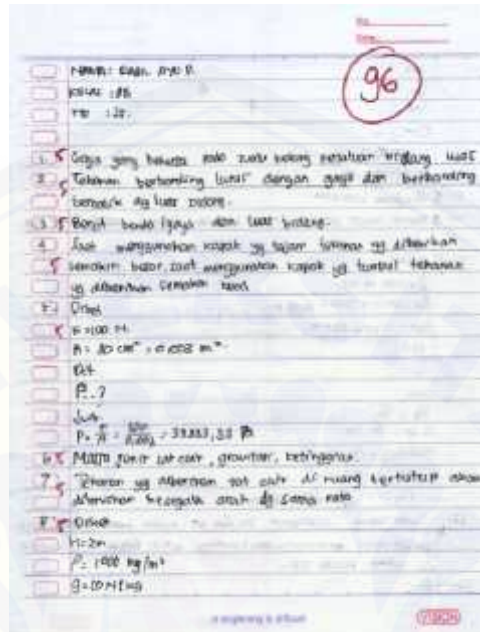 No.
Date.
96
NAMA:
KELAS : 8B
1. Gaya yang bekerja pada suatu bidang persatuan bidang luas
2. Tekanan berbanding lurus dengan gaya dan berbanding
terbalik dg luas bidang.
3. Berat benda (gaya dan luas bidang.
4. Saat menggunakan kapak yg tajam tekanan yg diberikan
semakin besar, saat menggunakan kapak yg tumpul tekanan
yg diberikan semakin kecil
5. Diket
F = 100 N
A = cm² = m²
Dit
P..?
Jwb
P = F/A = = Pa
6. Massa jenis zat cair, gravitasi, ketinggian.
7. Tekanan yg diberikan zat cair di ruang tertutup akan
diteruskan kesegala arah dg sama rata
8. Diket
H = 2m
P = 1000 kg/m³
g = 10 N/kg
VISION